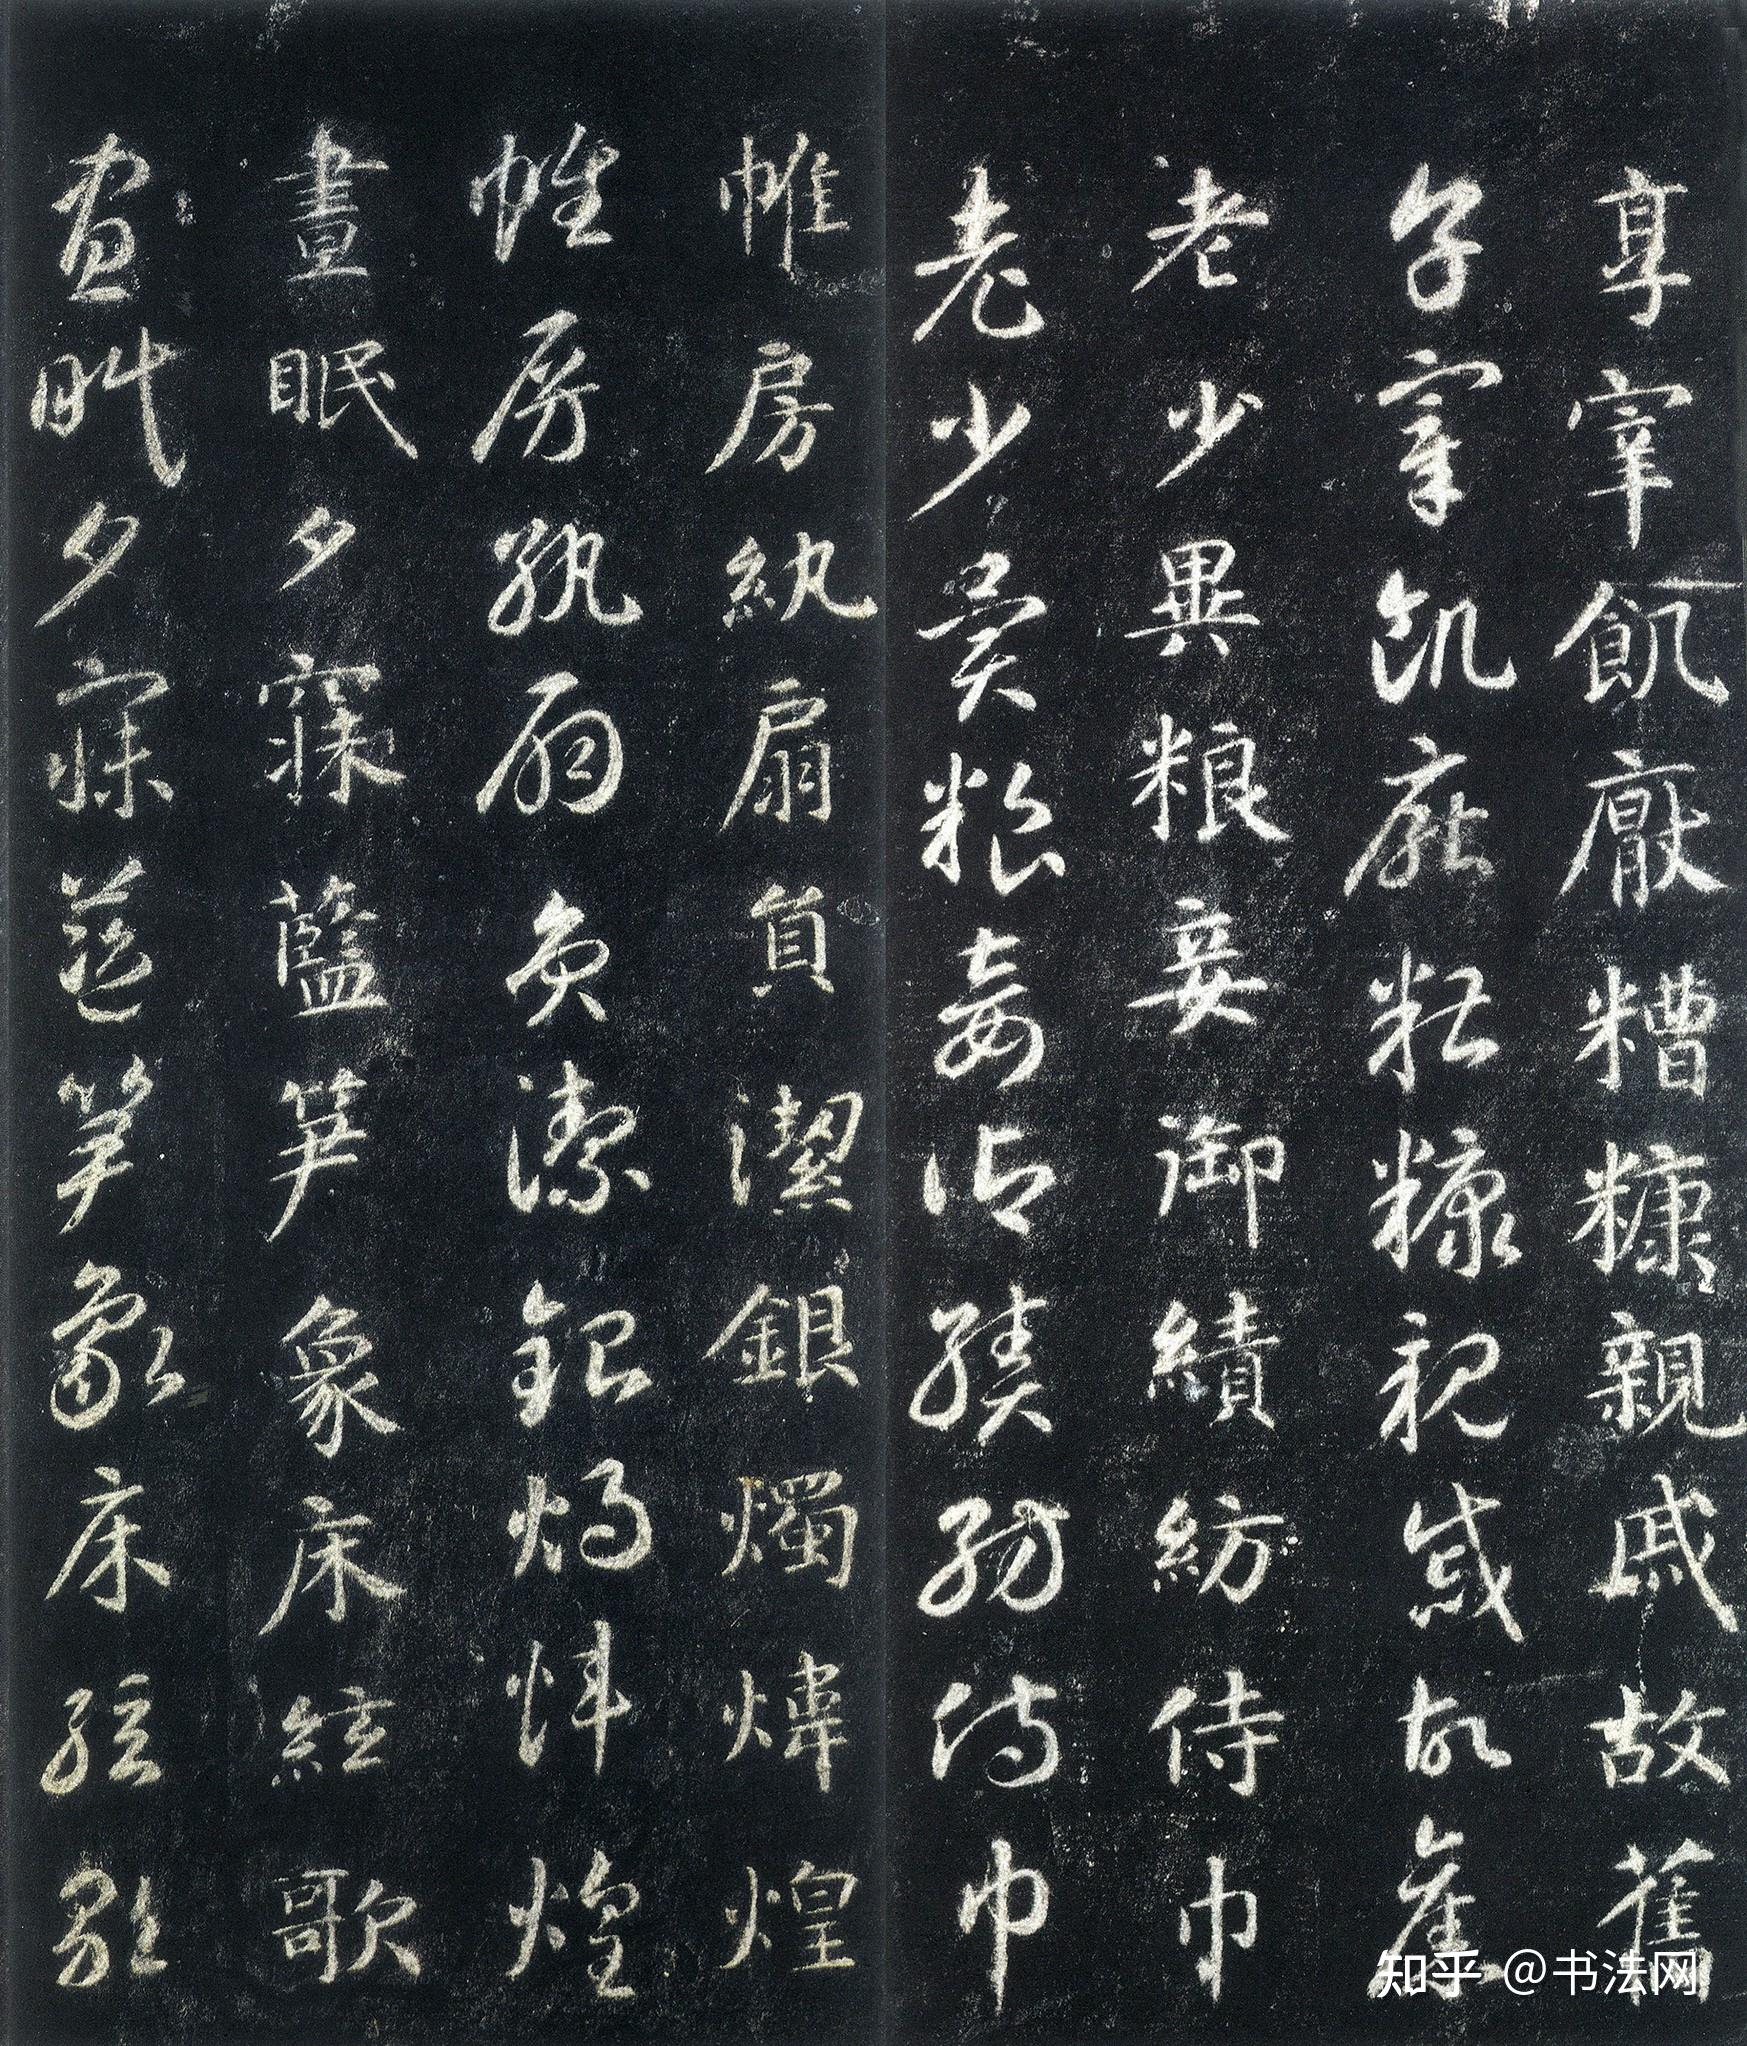 享宰飢厭糟糠親戚故舊
享宰飢厭糟糠親戚故舊
老少異粮妾御績紡侍巾
老少異粮妾御績紡侍巾
帷房紈扇員潔銀燭煒煌
帷房紈扇員潔銀燭煒煌
晝眠夕寐藍笋象床絃歌
晝眠夕寐藍笋象床絃歌
知乎 @书法网